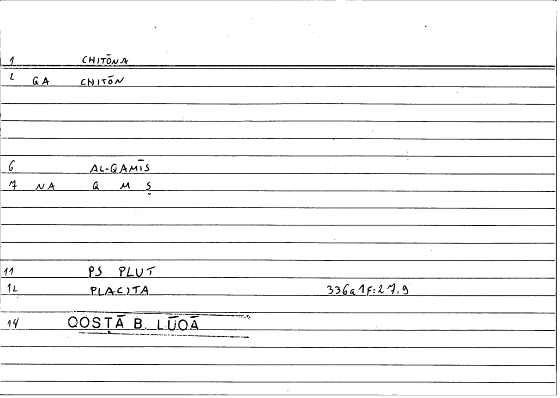 1 CHITŌNA
2 GA CHITŌN
6 AL-QAMĪṢ
7 NA Q M Ṣ
11 PS PLUT
12 PLACITA 336a1F:27.9
14 QOSṬĀ B. LŪQĀ